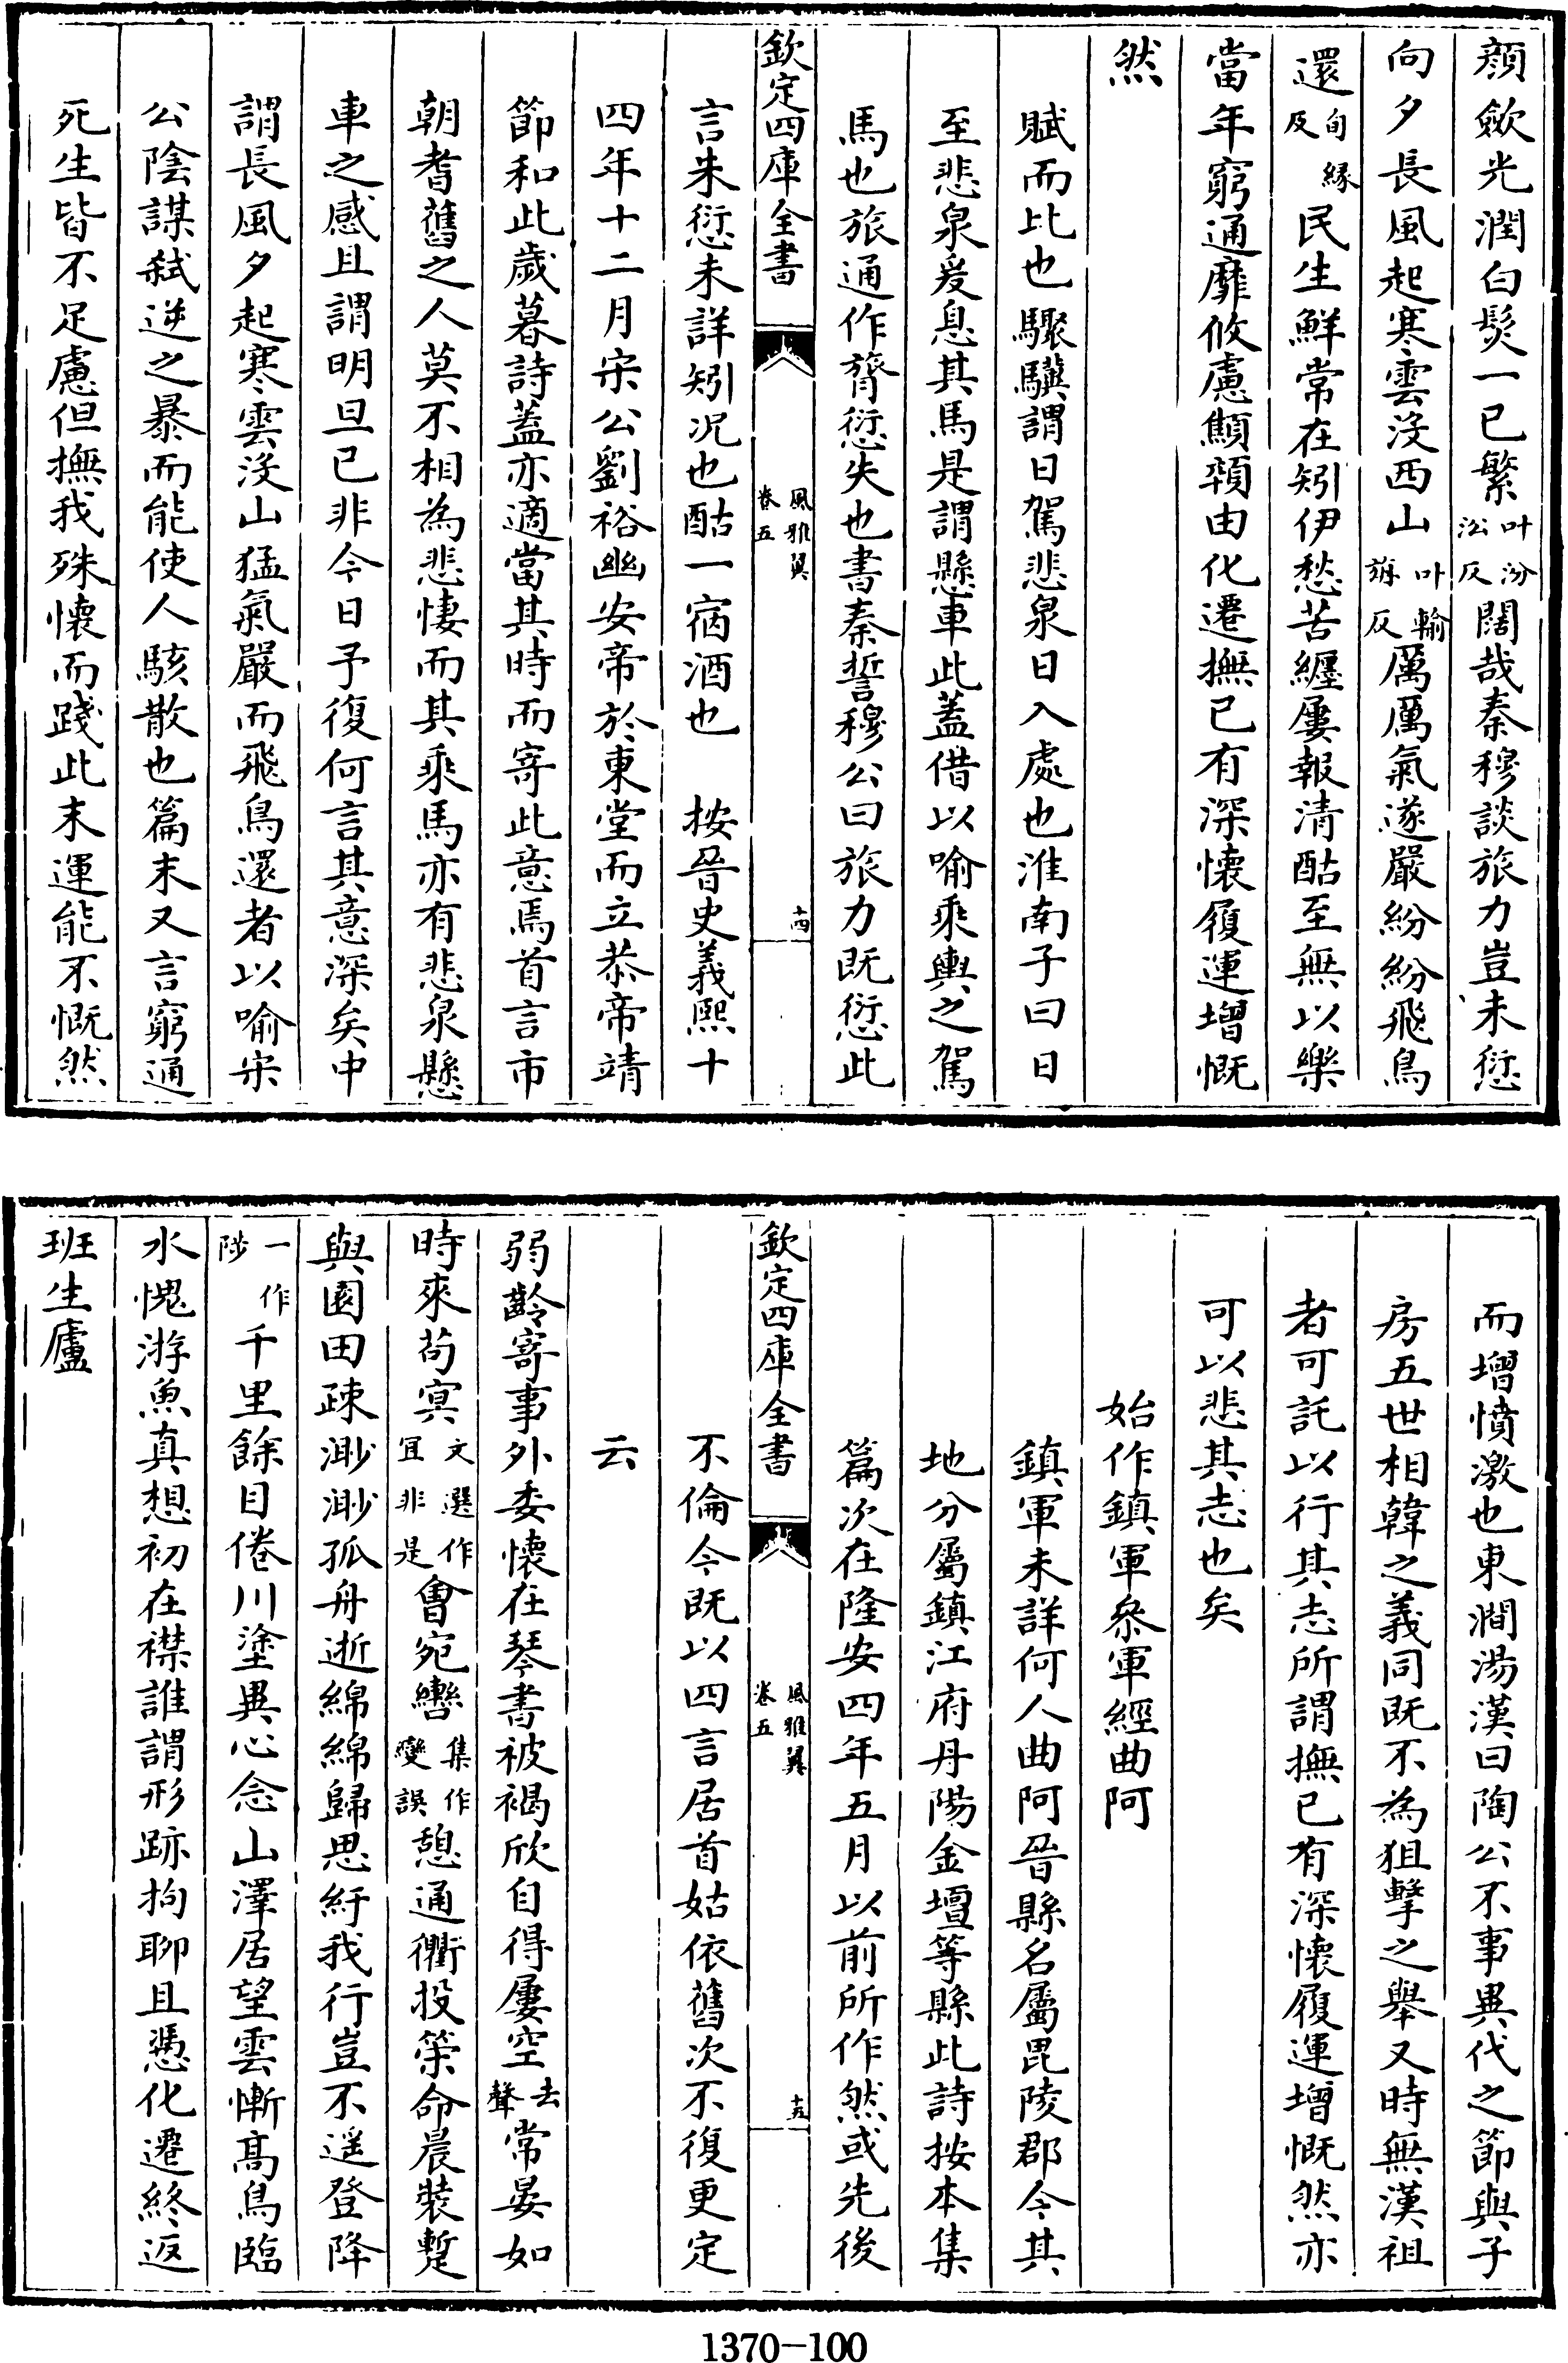 顔歛光潤白髮一已繁叶汾沿反闊哉秦穆談旅力豈未愆
向夕長風起寒雲没西山叶輸旃反厲厲氣遂嚴紛紛飛鳥
還旬縁反民生鮮常在矧伊愁苦纒屢報清酤至無以樂
當年窮通靡攸慮顦顇由化遷撫已有深懷履運增慨
然
賦而比也驟驥謂日駕悲泉日入處也淮南子曰日
至悲泉爰息其馬是謂懸車此蓋借以喻乘輿之駕
馬也旅通作膂愆失也書秦誓穆公曰旅力既愆此
欽定四庫全書
風雅翼
卷五
十四
言未愆未詳矧况也酤一宿酒也　按晉史義熙十
四年十二月宋公劉裕幽安帝於東堂而立恭帝靖
節和此歲暮詩蓋亦適當其時而寄此意焉首言市
朝耆舊之人莫不相為悲悽而其乘馬亦有悲泉懸
車之感且謂明旦已非今日予復何言其意深矣中
謂長風夕起寒雲没山猛氣嚴而飛鳥還者以喻宋
公陰謀弑逆之暴而能使人駭散也篇末又言窮通
死生皆不足慮但撫我殊懷而踐此末運能不慨然
而增憤激也東澗湯漢曰陶公不事異代之節與子
房五世相韓之義同既不為狙擊之舉又時無漢祖
者可託以行其志所謂撫已有深懷履運增慨然亦
可以悲其志也矣
始作鎮軍參軍經曲阿
鎮軍未詳何人曲阿晉縣名屬毘陵郡今其
地分屬鎮江府丹陽金壇等縣此詩按本集
篇次在隆安四年五月以前所作然或先後
欽定四庫全書
風雅翼
卷五
十五
不倫今既以四言居首姑依舊次不復更定
云
弱齡寄事外委懷在琴書被褐欣自得屢空去聲常晏如
時來茍㝠文選作冝非是會宛轡集作變誤憩通衢投䇿命晨裝暫
與園田疎渺渺孤舟逝綿綿歸思紆我行豈不遥登降
一作陟千里餘目倦川塗異心念山澤居望雲慚髙鳥臨
水愧游魚真想初在襟誰謂形跡拘聊且憑化遷終返
班生廬
1370-100